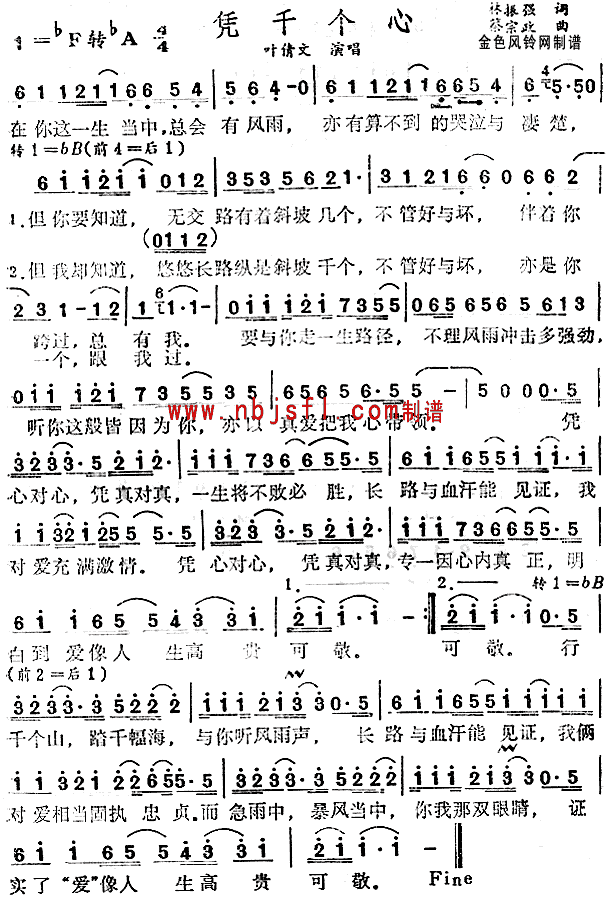 凭千个心
1=♭F转♭A 4/4
林振强 词
蔡宗政 曲
叶倩文 演唱
金色风铃网制谱
6 1 1 2 1 1 6 6 5 4 | 5 6 4 - 0 | 6 1 1 2 1 1 6 6 5 4 | 6 5 · 5 0
在你这一生 当中,总会 有风雨, 亦有算不到 的哭泣与 凄楚,
转1=bB(前4=后1)
6 i i 2 i i 0 1 2 | 3 5 3 5 6 1 2 1 · | 3 1 2 1 6 6 0 6 6 2
1.但你要知道, 无交 路有着斜坡几个,不 管好与坏, 伴着你
(0 1 1 2)
2.但我却知道, 悠悠长路纵是斜坡千个,不 管好与坏, 亦是你
2 3 1 - 1 2 | 1 1 · 1 - | 0 i i i 2 i 7 3 5 5 | 0 6 5 6 5 6 5 6 1 3
跨过,总 有 我。 要与你走一生路径, 不理风雨冲击多强劲,
一个,跟 我 过。
0 i i i 2 i 7 3 5 5 3 5 | 6 5 6 5 6 · 5 5 | 5 - 5 0 0 0 0 · 5
www.nbjsfl.com制谱
听你这般皆因为你,亦以 真爱把我心带领。 凭
3 2 3 3 · 5 2 i 2 · | i i i 7 3 6 6 5 5 · 5 | 6 i i 6 5 5 i i i · i
心对心,凭 真对真,一生将不败必 胜,长 路与血汗能 见证,我
i i 3 2 i 2 5 5 5 · 5 | 3 2 3 3 · 5 2 i 2 · | i i i 7 3 6 6 5 5 · 5
对 爱充满激情。 凭 心对心, 凭 真对真,专一因心内真 正,明
1. 2. 转1=bB
6 i i 6 5 5 4 3 3 i | 2 i i · i - :‖ 2 i i · i 0 · 5
白到 爱像人 生高 贵 可 敬。 可 敬。 行
(前2=后1)
3 2 3 3 · 3 5 2 2 2 | i i i i 2 i 3 3 0 · 5 | 6 i i 6 5 5 i i i · i
千个山,踏千幅海, 与你听风雨声, 长 路与血汗能 见证,我俩
i i 3 i 2 i 2 2 6 5 5 · 5 | 3 2 3 3 · 3 5 2 2 2 | i i i 2 i 3 3 0 · 5
对 爱相当固执 忠 贞.而 急雨中, 暴风当中, 你我那双眼睛, 证
6 i i 6 5 5 4 3 3 i | 2 i i · i - ‖
实了 “爱”像人 生高 贵 可 敬。 Fine